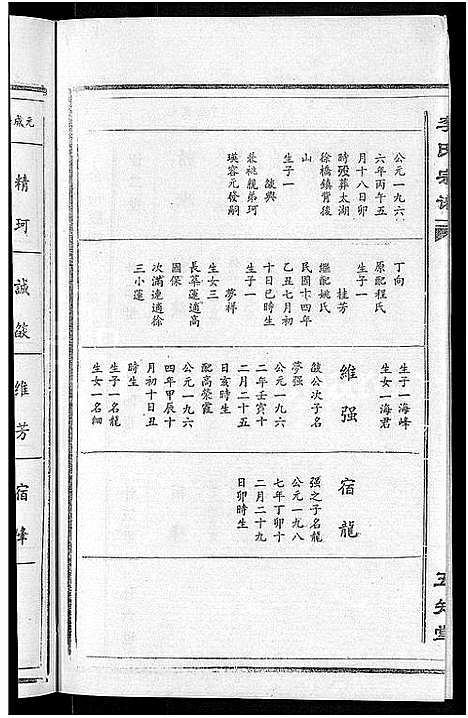 李氏宗譜
公元一九六
六年丙午五
月十八日卯
時歿葬太湖
徐橋鎮背後
山
生子一
啟興
兼祧親弟珂
瑛容元發嗣
丁向
原配程氏
生子一
桂芳
繼配姚氏
民國十四年
乙丑七月初
十日巳時生
生子一
夢祥
生女三
長葉運適高
國保
次滿連適徐
三小蓮
生子一海峰
生女一海君
維强
啟公次子名
夢强
公元一九六
二年壬寅十
二月二十五
日亥時生
配高榮霞
公元一九六
四年甲辰十
月初十日丑
時生
生子一名龍
生女一名細
宿龍
强之子名龍
公元一九八
七年丁卯十
二月二十九
日卯時生
五知堂
元成
精珂
誠啟
維芳
宿峰